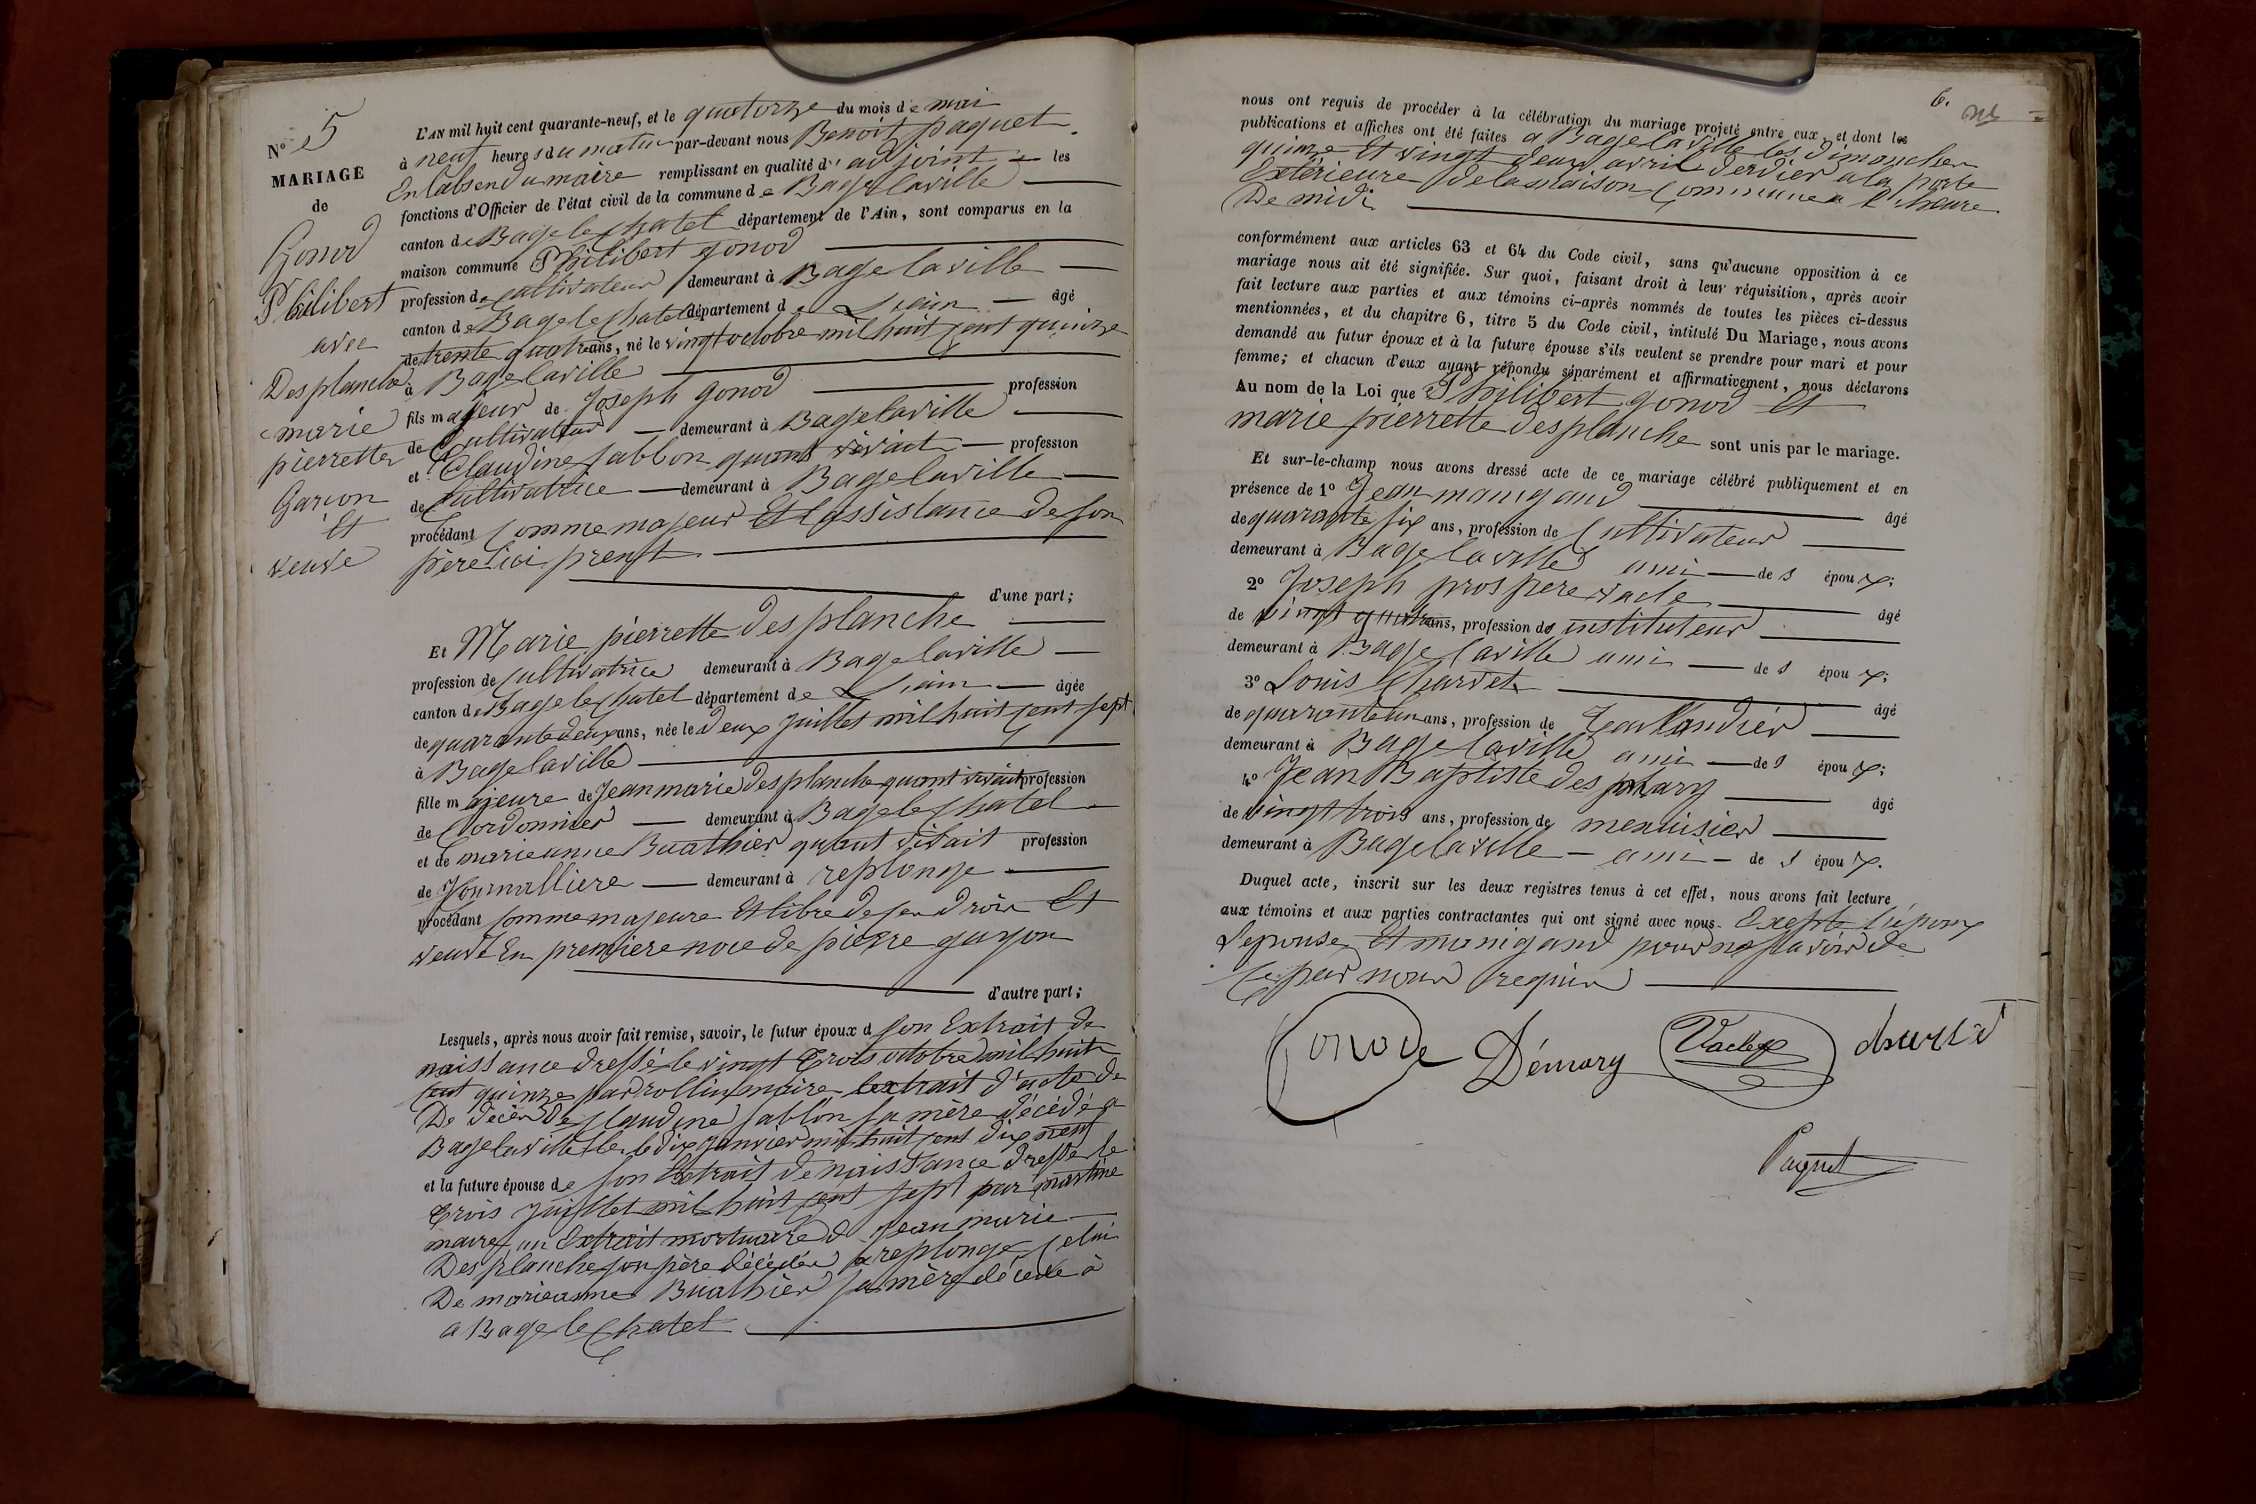 N° 5
MARIAGE
de
Gonod
Philibert
avec
Desplanche
marie
pierrette
Garçon
Et
veuve
L'AN mil huit cent quarante-neuf, et le quatorze du mois de mai
à neuf heures du matin par-devant nous Benoit paquet
En labsend du maire remplissant en qualité d' adjoint les
fonctions d'Officier de l'état civil de la commune de Bagelaville
canton de Bage le chatel département de l'Ain, sont comparus en la
maison commune Philibert gonod
profession de Cultivateur demeurant à Bage laville
canton de Bage le Chatel département de L'ain âgé
de trente quatre ans, né le vingt octobre mil huit cent quinze
à Bagelaville
fils majeur de Joseph gonod profession
de Cultivateur demeurant à Bagelaville
et Claudine Sablon quant vivait profession
de Cultivatrice demeurant à Bagelaville
procédant Comme majeur Et lassistance de son
père ici prenst
d'une part;
Et Marie pierrette desplanche
profession de Cultivatrice demeurant à Bagelaville
canton de Bage le Chatel département de L'ain âgée
de quarante deux ans, née le deux juillet mil huit cent sept
à Bagelaville
fille majeure de Jean marie desplanche quant vivait profession
de Cordonnier demeurant à Bage le Chatel
et de marieanne Buathier quant vivait profession
de Journalliere demeurant à replonge
procédant Comme majeure Et libre de sen droin Et
veuve En premiere noce de pierre guyon
d'autre part;
Lesquels, après nous avoir fait remise, savoir, le futur époux d son Extrait de
naissance dressé le vingt trois octobre mil huit
cent quinze par rollin maire lextrait d'acte de
De décèn de Claudine Sablon sa mère décédé a
Bagelaville le dix janvier mil huit cent dix neuf
et la future épouse de son Extrait de naissance dressé le
trois juillet mil huit cent sept par martine
maire, un Extrait mortuaire d Jean marie
Desplanche son père décédé a replonge, Celui
De marieanne Buathier sa mère décédé à
a Bage le Chatel
6.
nous ont requis de procéder à la célébration du mariage projeté entre eux, et dont les
publications et affiches ont été faites a Bagelaville les dimanchen
quinze Et vingt deux avril dernier a la porte
Extérieure de la maison Commune a l'heure
De midi
conformément aux articles 63 et 64 du Code civil, sans qu'aucune opposition à ce
mariage nous ait été signifiée. Sur quoi, faisant droit à leur réquisition, après avoir
fait lecture aux parties et aux témoins ci-après nommés de toutes les pièces ci-dessus
mentionnées, et du chapitre 6, titre 5 du Code civil, intitulé Du Mariage, nous avons
demandé au futur époux et à la future épouse s'ils veulent se prendre pour mari et pour
femme; et chacun d'eux ayant répondu séparément et affirmativement, nous déclarons
Au nom de la Loi que Philibert gonod Et
marie pierrette desplanche sont unis par le mariage.
Et sur-le-champ nous avons dressé acte de ce mariage célébré publiquement et en
présence de 1° Jean manigand âgé
de quarante six ans, profession de Cultivateur
demeurant à Bagelaville ami de s époux;
2° Joseph prospere vacle âgé
de vingt quatre ans, profession d instituteur
demeurant à Bagelaville ami de s époux;
3° Louis Charvet âgé
de quarante un ans, profession de
demeurant à Bagelaville ami de s époux;
4° Jean Baptiste des mary âgé
de vingt trois ans, profession de menuisier
demeurant à Bagelaville ami de s époux.
Duquel acte, inscrit sur les deux registres tenus à cet effet, nous avons fait lecture
aux témoins et aux parties contractantes qui ont signé avec nous. Exepte l'époux
Lepouse Et manigand pour ne savoir de
Ce par nour requin
Gonod Démary Vacle charvet
Paquet